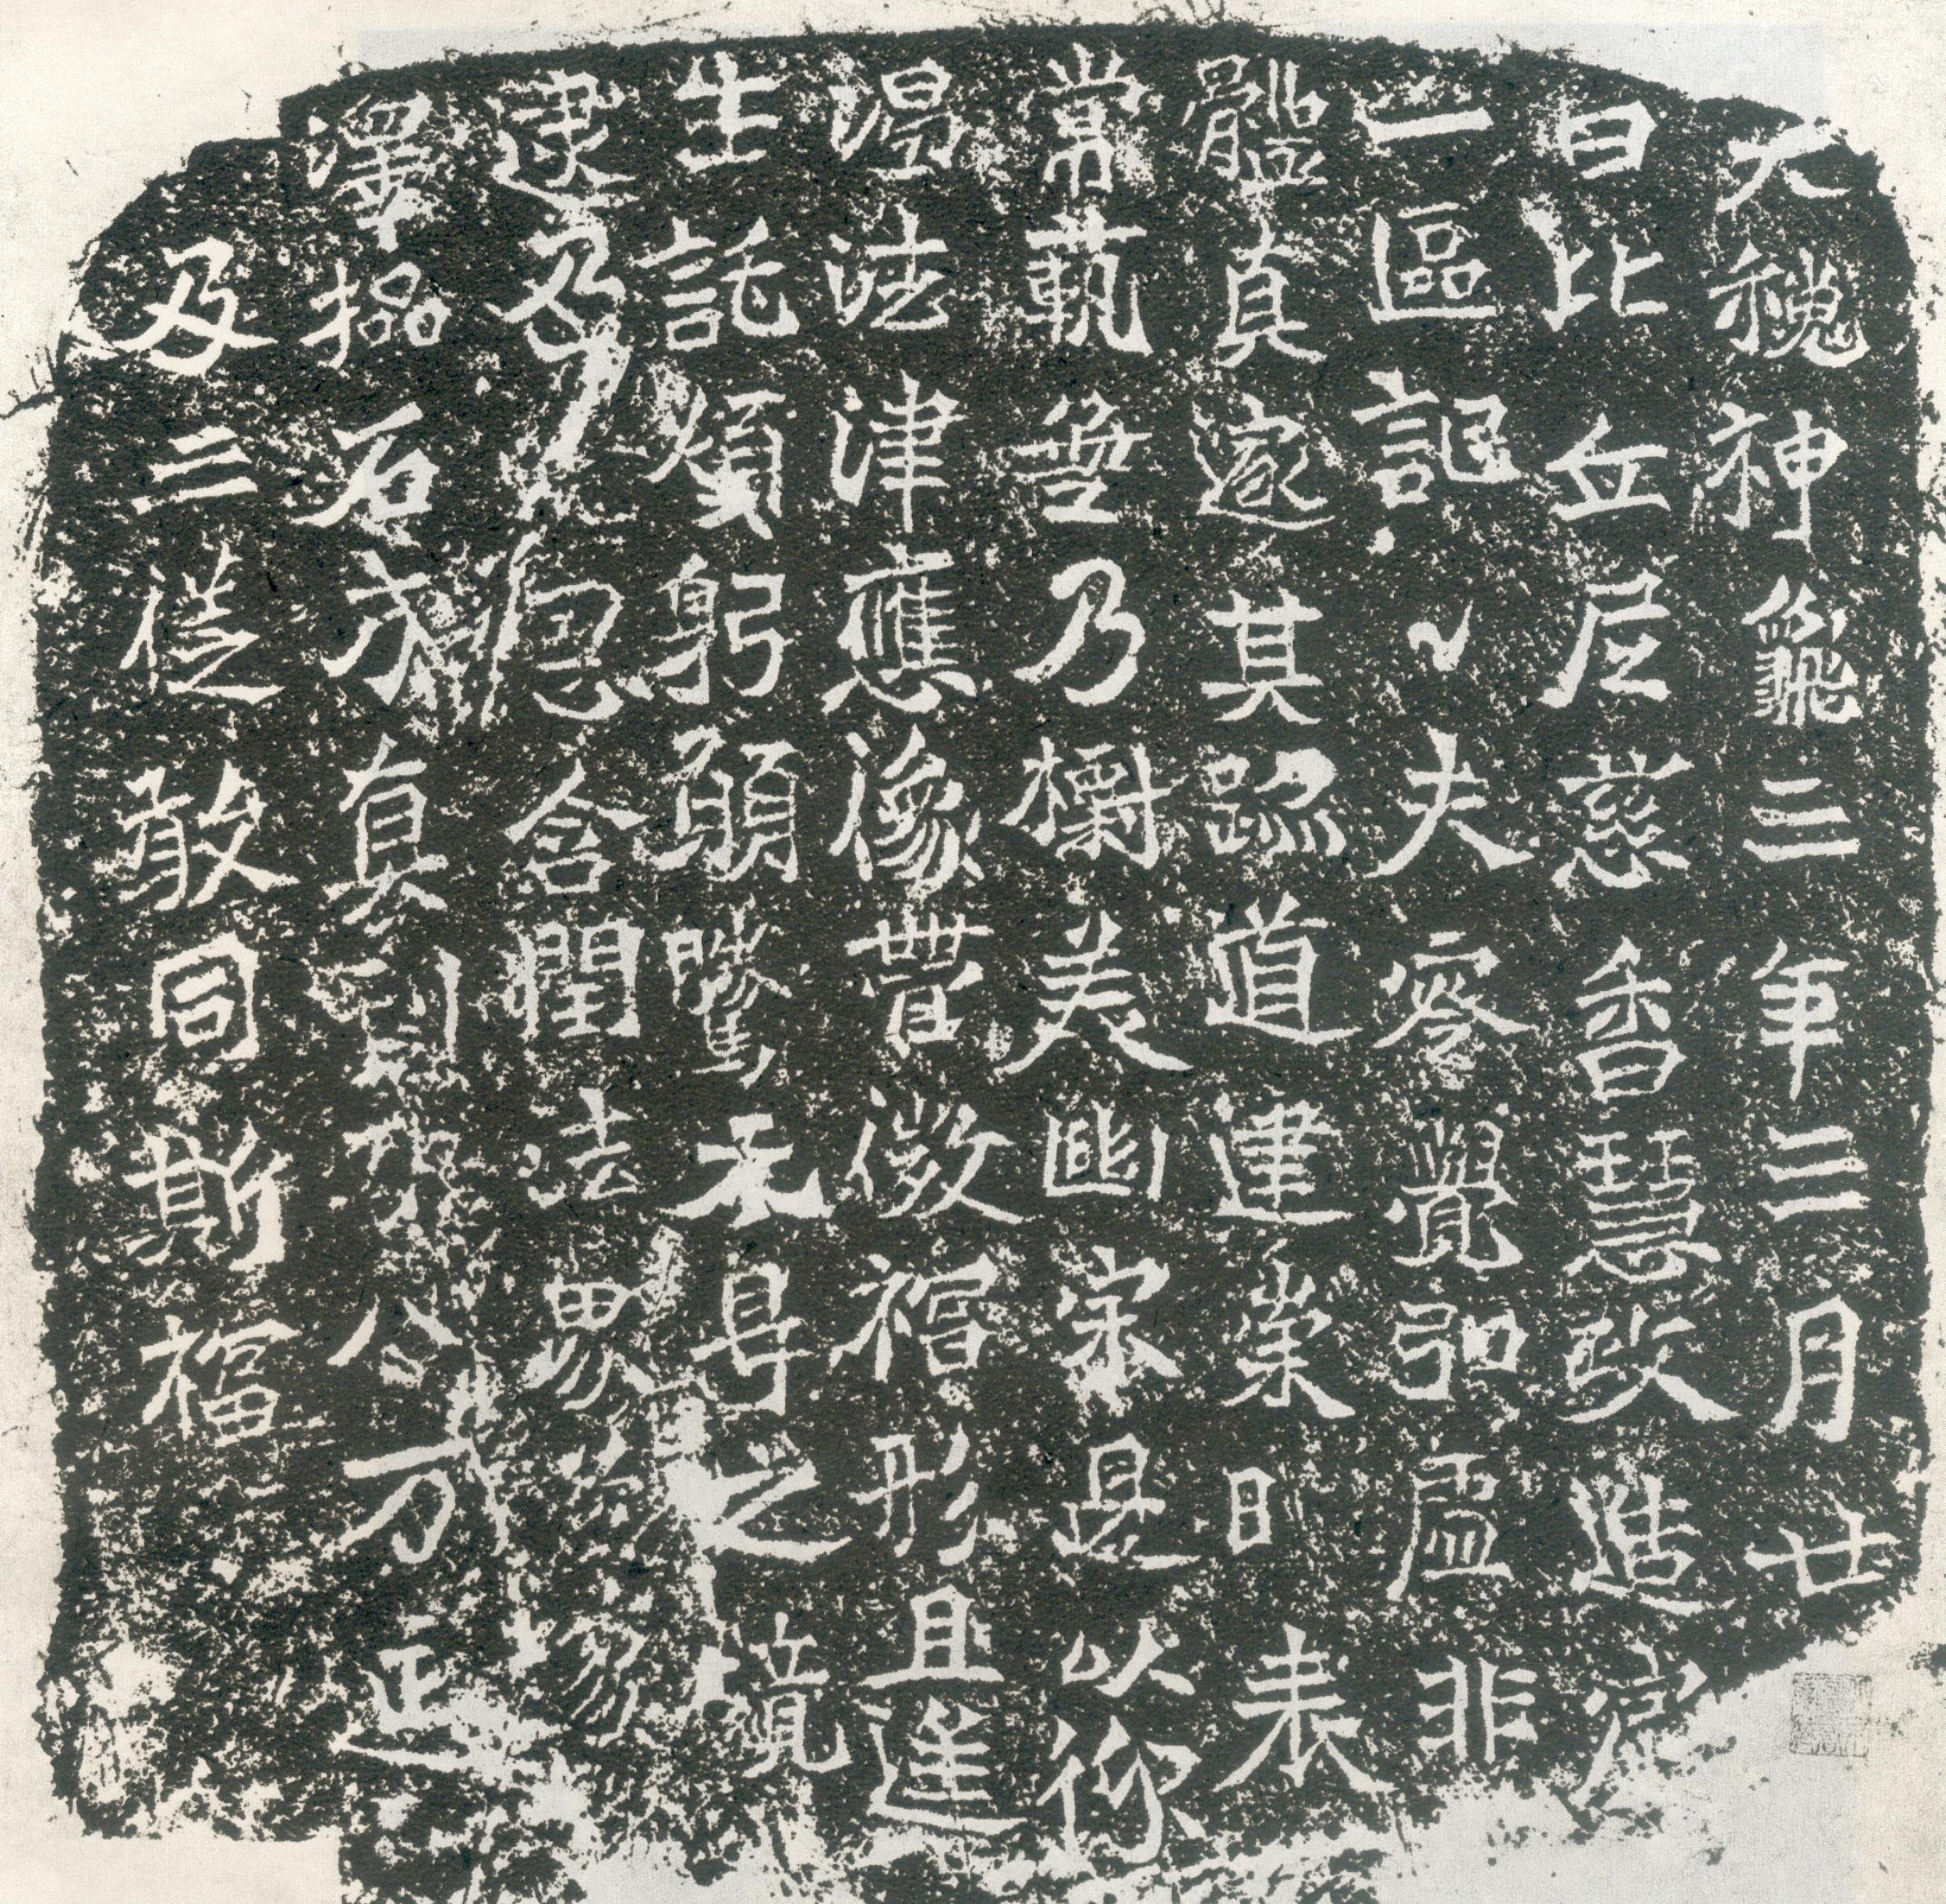 大魏神龜三年三月廿
日比丘尼慈香慧政造窟
一區記夫零覺弘虛非
體真邃其跡道建崇日表
常範无乃標美幽宗是以仰
渴法津應像營微福形且逢
生託煩躬願騰无㝵之境
逮及恩含潤法界
澤石成真刊功八万延
及三從敢同斯福